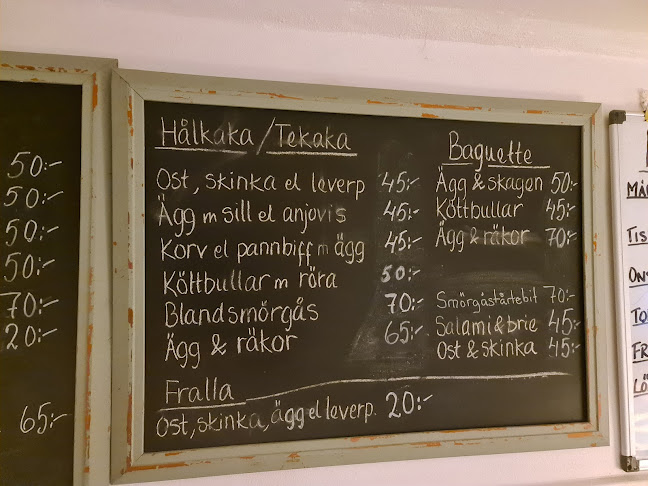 50:-
50:-
50:-
50:-
70:-
20:-
65:-
Hålkaka / Tekaka
Ost, skinka el leverp 45:-
Ägg m sill el anjovis 45:-
Korv el pannbiff m ägg 45:-
Köttbullar m röra 50:-
Blandsmörgås 70:-
Ägg & räkor 65:-
Baguette
Ägg & skagen 50:-
Köttbullar 45:-
Ägg & räkor 70:-
Smörgåstårtebit 70:-
Salami & brie 45:-
Ost & skinka 45:-
Fralla
Ost, skinka, ägg el leverp. 20:-
TIS
ONS
FR